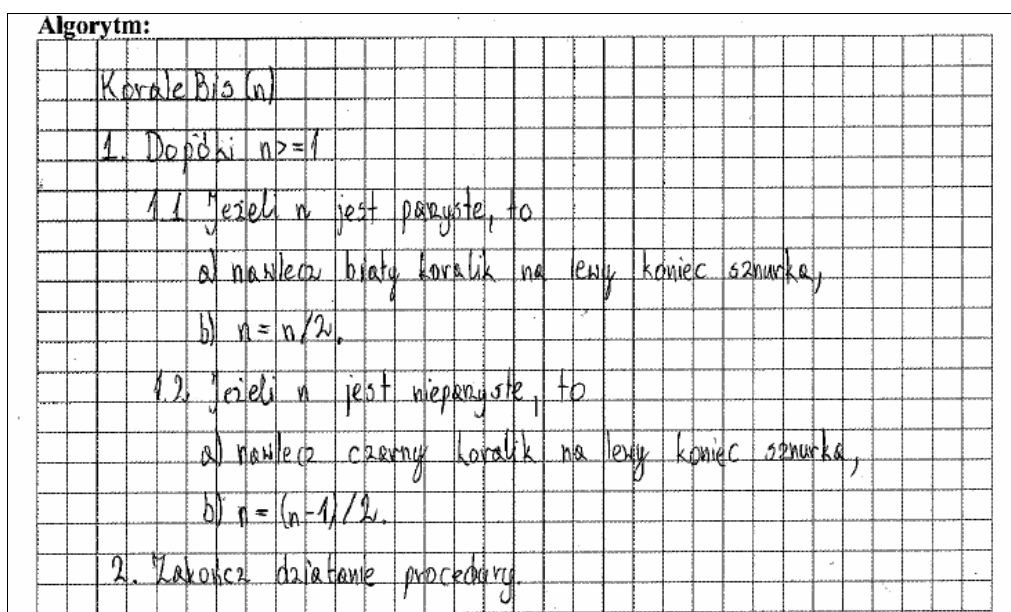 Algorytm:
KoraleBis(n)
1. Dopóki n>=1
1.1 Jeżeli n jest parzyste, to
a) nawlecz biały koralik na lewy koniec sznurka,
b) n = n/2.
1.2 Jeżeli n jest nieparzyste, to
a) nawlecz czarny koralik na lewy koniec sznurka,
b) n = (n-1)/2.
2. Zakończ działanie procedury.